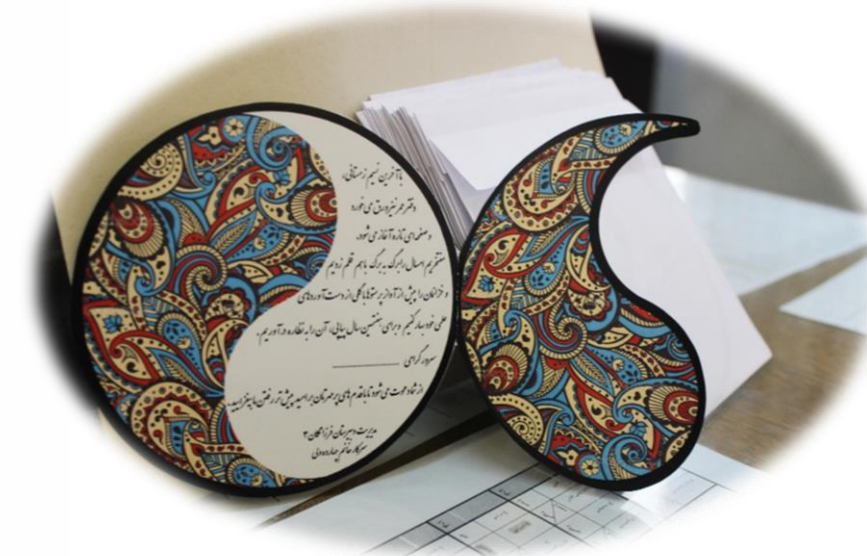 با آخرین نسیم زمستانی،
دفتر عمر نیز ورق می خورد
و صفحه ای تازه آغاز می شود.
مفتخریم امسال را برگ به برگ باهم قلم زدیم
و خزانمان را پیش از آواز پرستوها گلی از دست آوردهای
علمی خود بهار کنیم و برای هفتمین سال پیاپی، آن را به نظاره درآوریم.
سرور گرامی
از شما دعوت می شود تا با قدم های پر مهرتان بر امید پیش تر رفتن ما بیفزایید.
مدیریت دبیرستان فرزانگان ۲
سرکار خانم چهاردولی